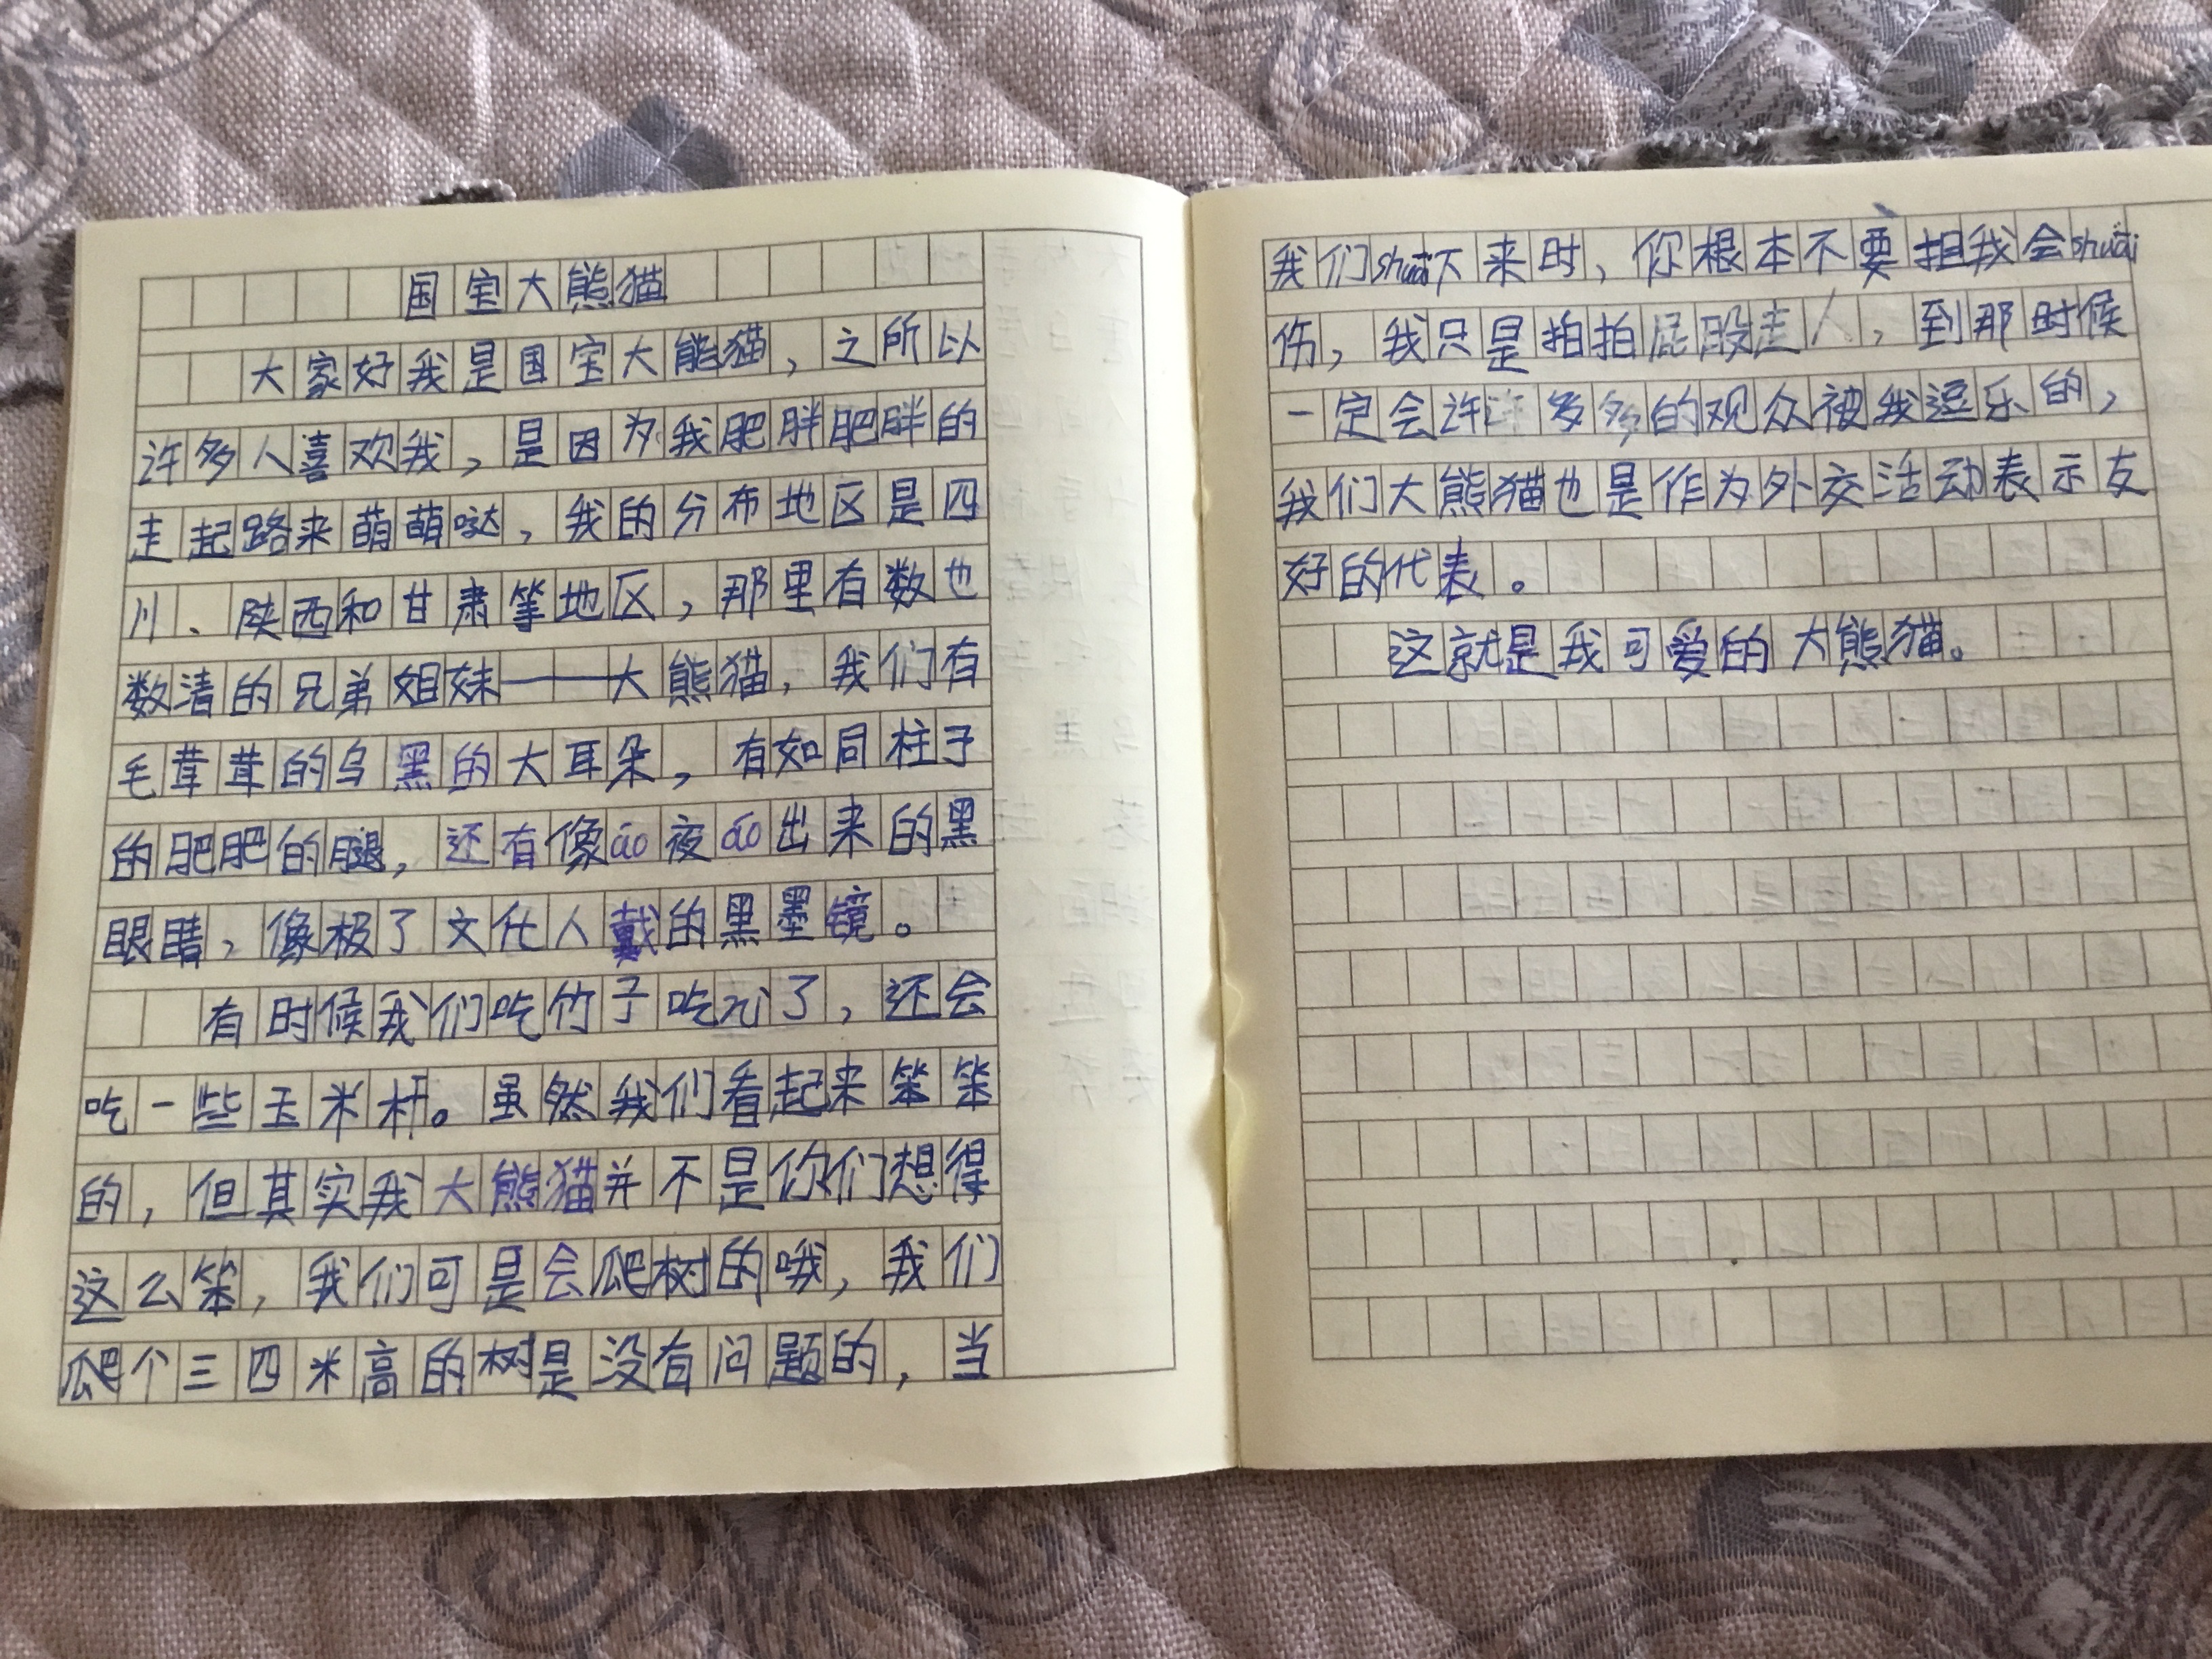 国宝大熊猫
大家好我是国宝大熊猫，之所以
许多人喜欢我，是因为我肥胖肥胖的
走起路来萌萌哒，我的分布地区是四
川、陕西和甘肃等地区，那里有数也
数清的兄弟姐妹——大熊猫，我们有
毛茸茸的乌黑的大耳朵，有如同柱子
的肥肥的腿，还有像áo夜áo出来的黑
眼睛，像极了文化人戴的黑墨镜。
有时候我们吃竹子吃完了，还会
吃一些玉米杆。虽然我们看起来笨笨
的，但其实我大熊猫并不是你们想得
这么笨，我们可是会爬树的哦，我们
爬个三四米高的树是没有问题的，当
我们shuāi下来时，你根本不要担我会shuāi
伤，我只是拍拍屁股走人，到那时候
一定会许许多多的观众被我逗乐的，
我们大熊猫也是作为外交活动表示友
好的代表。
这就是我可爱的大熊猫。